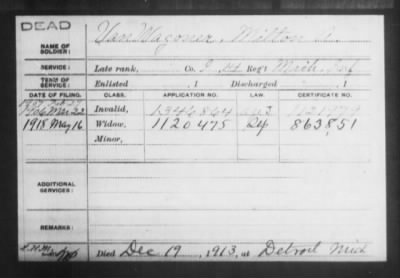 DEAD
NAME OF SOLDIER: Van Wagoner, Milton
SERVICE: Late rank, Co. Reg't Mich. Inf
TERM OF SERVICE: Enlisted , 1 Discharged , 1
DATE OF FILING. CLASS. APPLICATION NO. LAW. CERTIFICATE NO.
Invalid, 1344864
1918 May 16 Widow, 1120475 863851
Minor,
ADDITIONAL SERVICES:
REMARKS:
Died Dec 19, 1913, at Detroit Mich